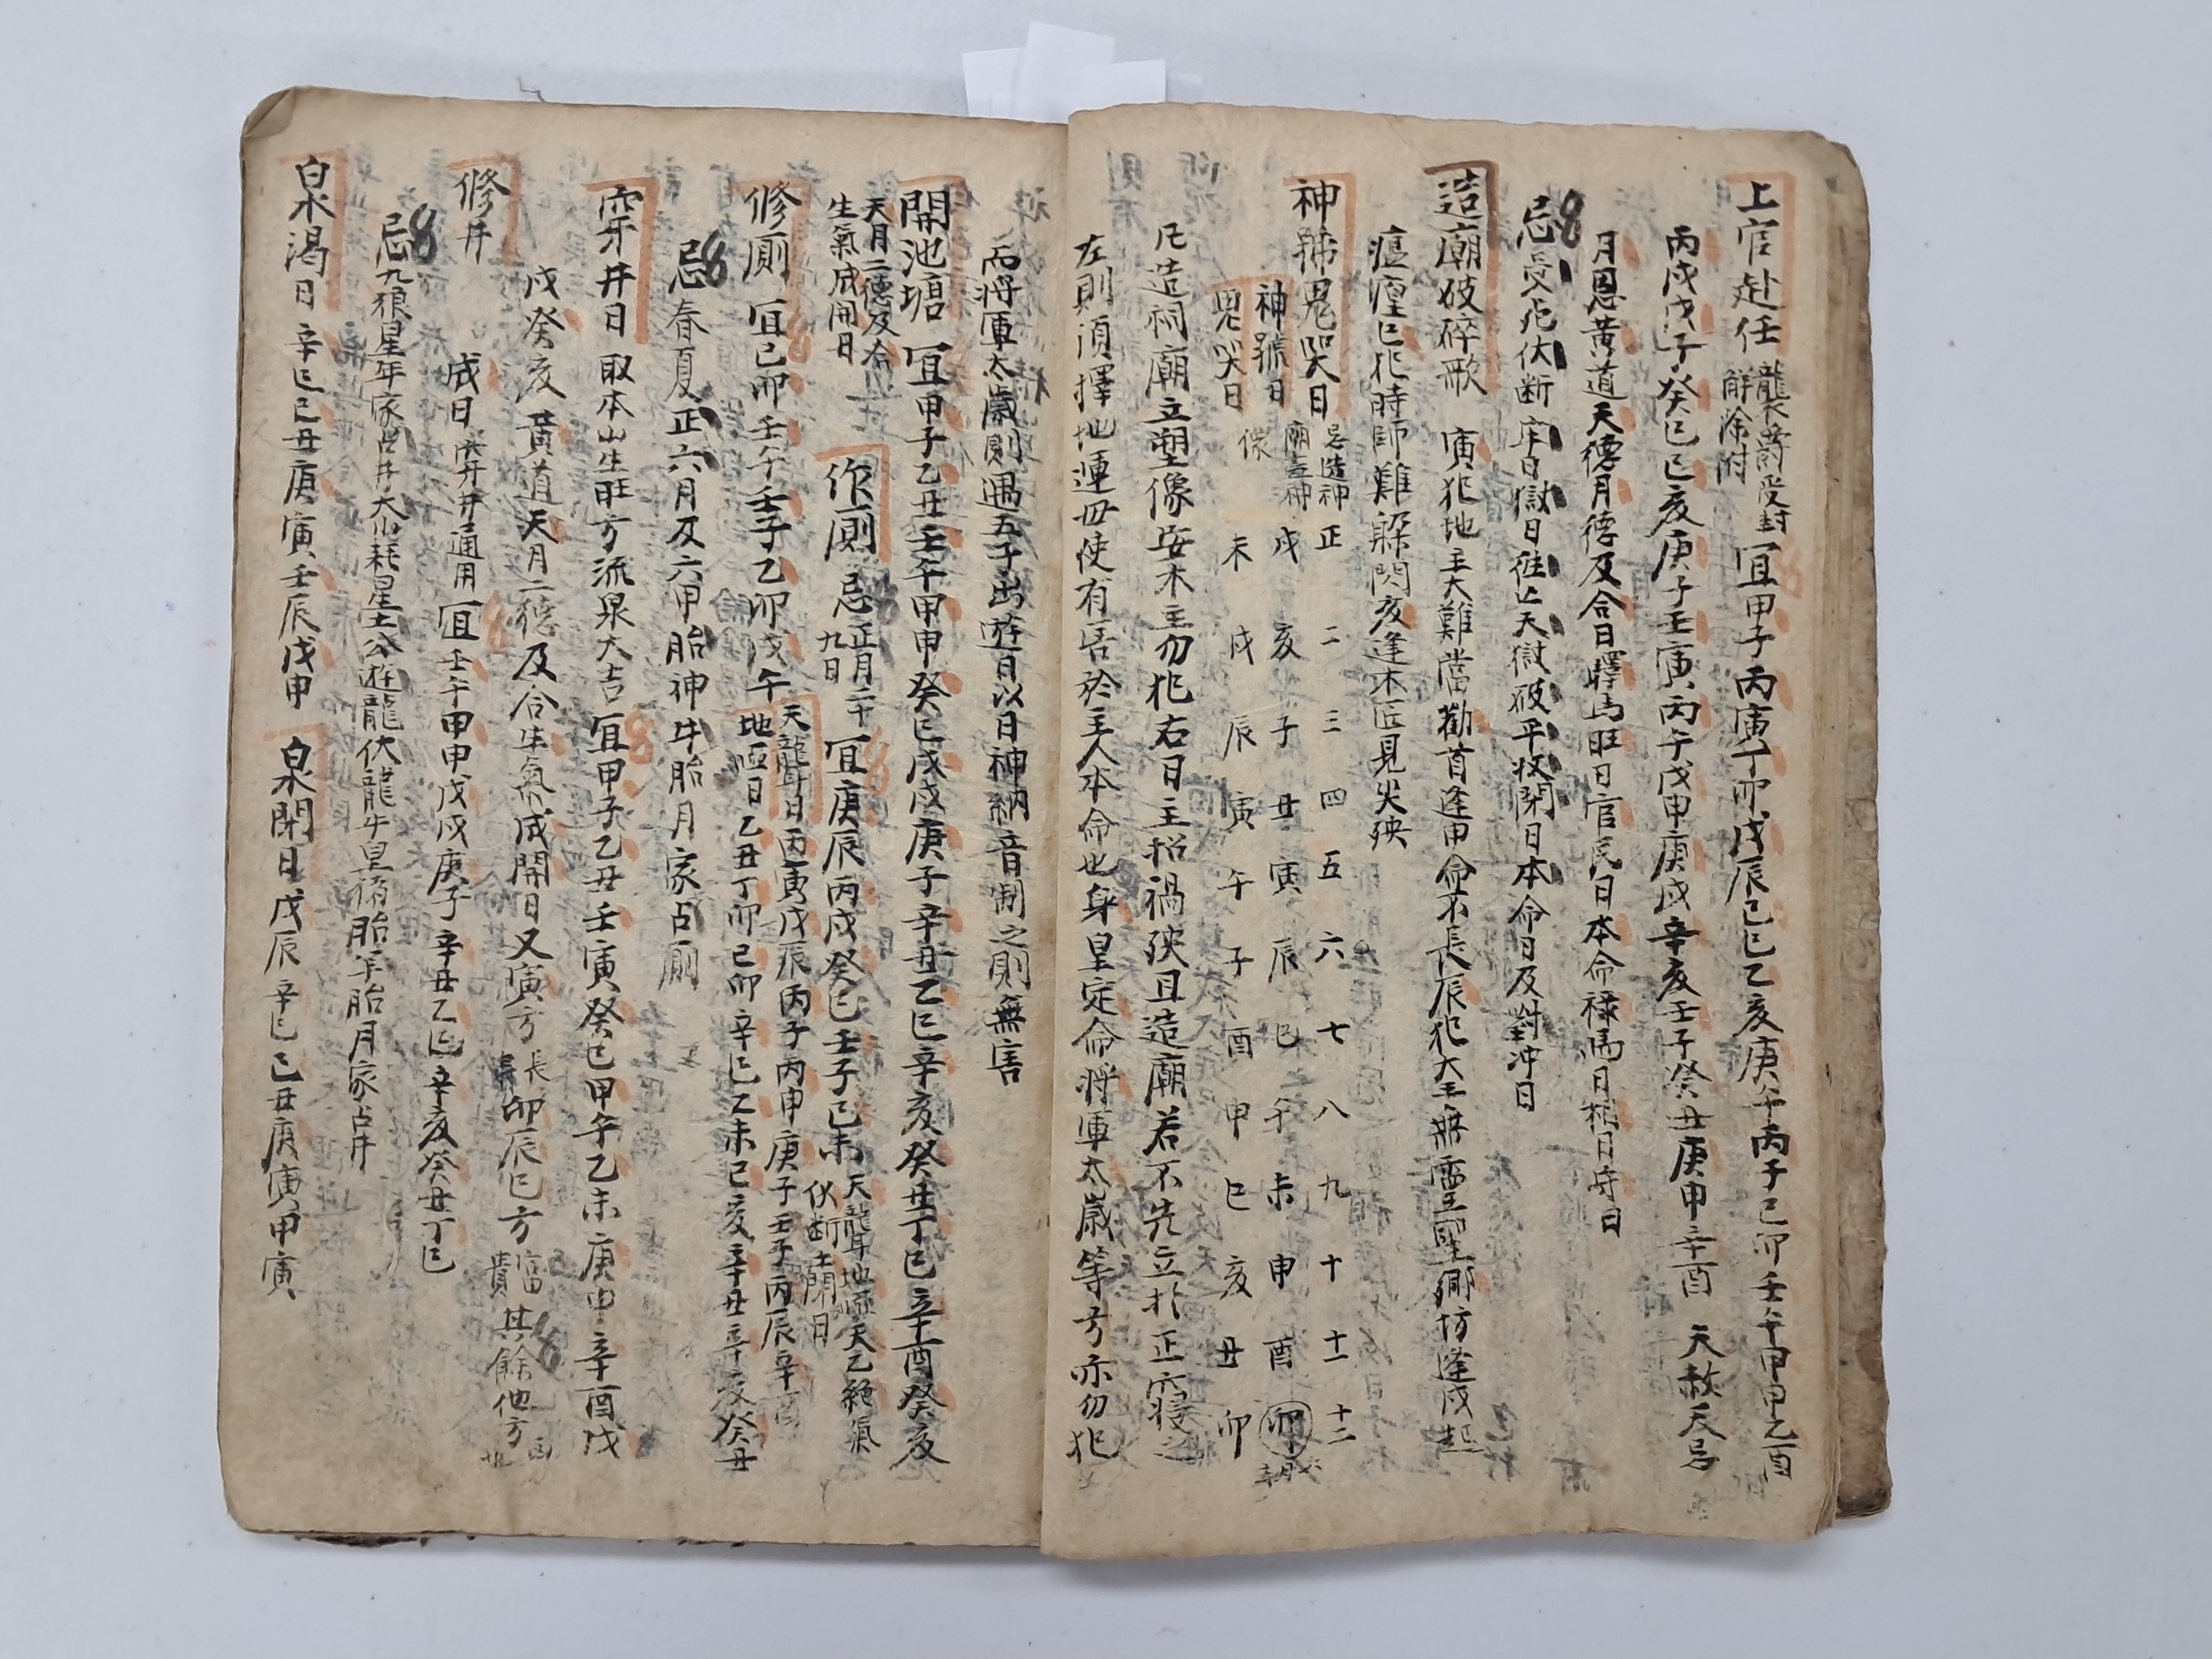 上官赴任 襲爵受封 解除附 宜甲子丙寅丁卯戊辰己巳乙亥庚午丙子己卯壬午甲申乙酉
丙戌戊子癸巳己亥庚子壬寅丙午戊申庚戌辛亥壬子癸丑庚申辛酉 天赦天恩
月恩黃道天德月德及合日驛馬旺日官民日本命祿馬月相日守日
忌受死伏断牢日獄日徃亡天獄破平收閉日本命日及對冲日
造廟破碎歌 寅犯地主大難當勸首逢申命不長辰犯大王無灵聖鄉坊逢戌起
瘟瘟巳犯時師難躲閃亥逢木匠見灾殃
神號鬼哭日 忌造神廟立神像 正 二 三 四 五 六 七 八 九 十 十一 十二
神號日 戌 亥 子 丑 寅 辰 巳 午 未 申 酉 卯
鬼哭日 未 戌 辰 寅 午 子 酉 申 巳 亥 丑 卯
凡造祠廟立塑像安木主勿犯右日主招禍殃且造廟若不先立於正寢之
左則須擇地運毋使有害於主人本命也身皇定命將軍太歲等方亦勿犯
而將軍太歲則遇五子出遊日以日神納音制之則無害
開池塘 宜甲子乙丑壬午甲申癸巳戊戌庚子辛丑乙巳辛亥癸丑丁巳辛酉癸亥
天月二德及合生氣成開日
作廁 忌正月二十九日 宜庚辰丙戌癸巳壬子己未 天聾地啞天乙絕氣伏断土閉日
修廁 宜己卯壬午壬子乙卯戊午
天聾日丙寅戊辰丙子丙申庚子壬子丙辰辛酉
地啞日乙丑丁卯己卯辛巳乙未己亥辛丑辛亥癸丑
忌春夏正六月及六甲胎神牛胎月家占廁
穿井日 取本山生旺方流泉大吉 宜甲子乙丑壬寅癸巳甲午乙未庚申辛酉戊
戌癸亥黃道天月二德及合生氣成開日又寅方長壽卯辰巳方富貴其餘他方凶
修井 成日 穿井通用 宜壬午甲申戊戌庚子辛丑乙巳辛亥癸丑丁巳
忌九狼星年家占井大小耗星土公遊龍伏龍牛皇猪胎牛胎月家占井
泉渴日 辛巳己丑庚寅壬辰戊申 泉閉日 戊辰辛巳己丑庚寅甲寅